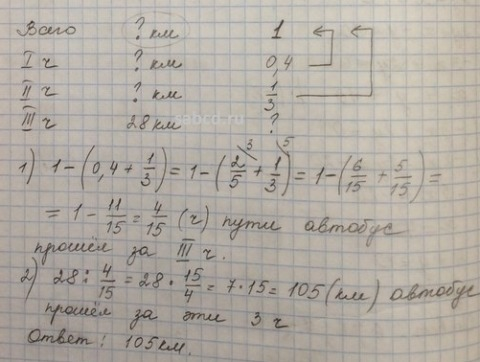 Всего ? км 1
I ч ? км 0,4
II ч ? км 1/3
sabrd.ru
III ч 28 км ?
1) 1-(0,4+1/3)=1-(2/5 3+1/3 5)=1-(6/15+5/15)=
=1-11/15=4/15 (ч) пути автобус
прошёл за III ч.
2) 28:4/15=28·15/4=7·15=105 (км) автобус
прошёл за эти 3 ч
Ответ: 105км.